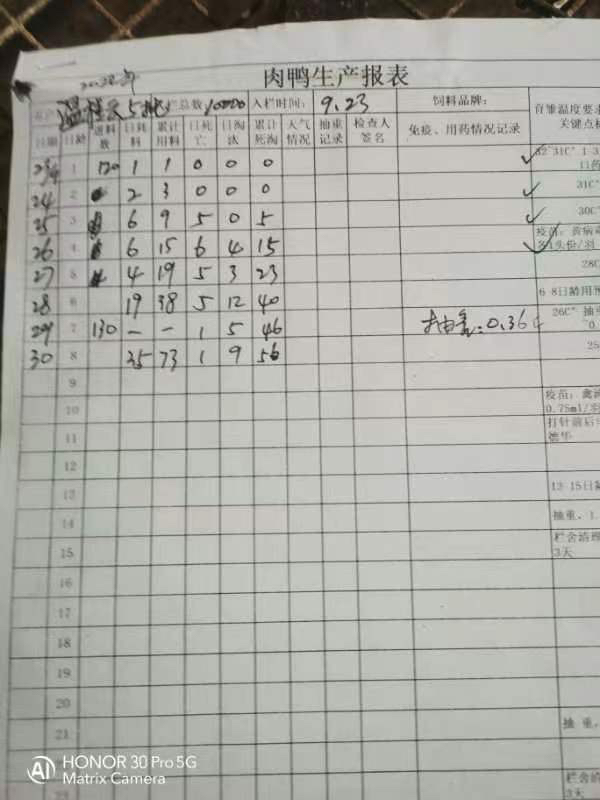 肉鸭生产报表
栏总数 10000 入栏时间: 9.23 饲料品牌: 育雏温度要求
日期 日龄 进料数 日耗料 累计用料 日死亡 日淘汰 累计死淘 天气情况 抽重记录 检查人签名 免疫、用药情况记录 关键点
23 1 120 1 1 0 0 0 32~31C° 1-3
24 2 2 3 0 0 0 31C°
25 3 6 9 5 0 5 30C°
26 4 6 15 6 4 15 疫苗:
27 5 4 19 5 3 23 28C
28 6 19 38 5 12 40 6-8日龄用
29 7 130 — — 1 5 46 抽重:0.364 26C° 抽重
30 8 35 73 1 9 56 25
9
10 疫苗:禽
0.75ml/羽
11 打针前后
12
13 12-15日龄
14 抽重、1.
15 栏舍清理
3天
16
17
18
19
20
21 抽重,
22
23 栏舍
3天
HONOR 30 Pro 5G
Matrix Camera